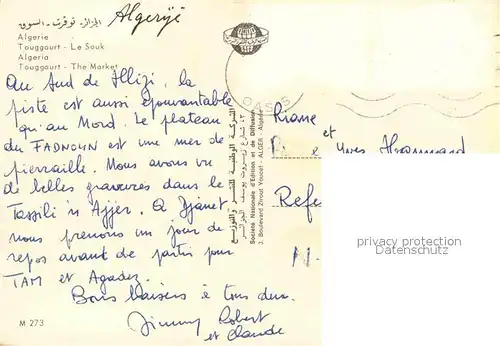 الجزائر - توقرت - السوق
Algerijë
Algerie
Touggourt - Le Souk
Algeria
Touggourt - The Market
Au Sud de Illizi, la
piste est aussi épouvantable
qu'au Nord. Le plateau
du FADNOUN est une mer de
pierraille. Nous avons vu
de belles gravures dans le
Tassili n Ajjer. A Djanet
nous prenons un jour de
repos avant de partir pour
TAM et Agadez.
Bons baisers à tous deux.
Jimmy Robert
et Claude
M 273
OASIS
الشركة الوطنية للنشر والتوزيع
٣، شارع زيروت يوسف، الجزائر
Société Nationale d'Edition et de Diffusion
3, Boulevard Zirout Youcef - ALGER - Algérie
et
Yves
Refe
privacy protection
Datenschutz